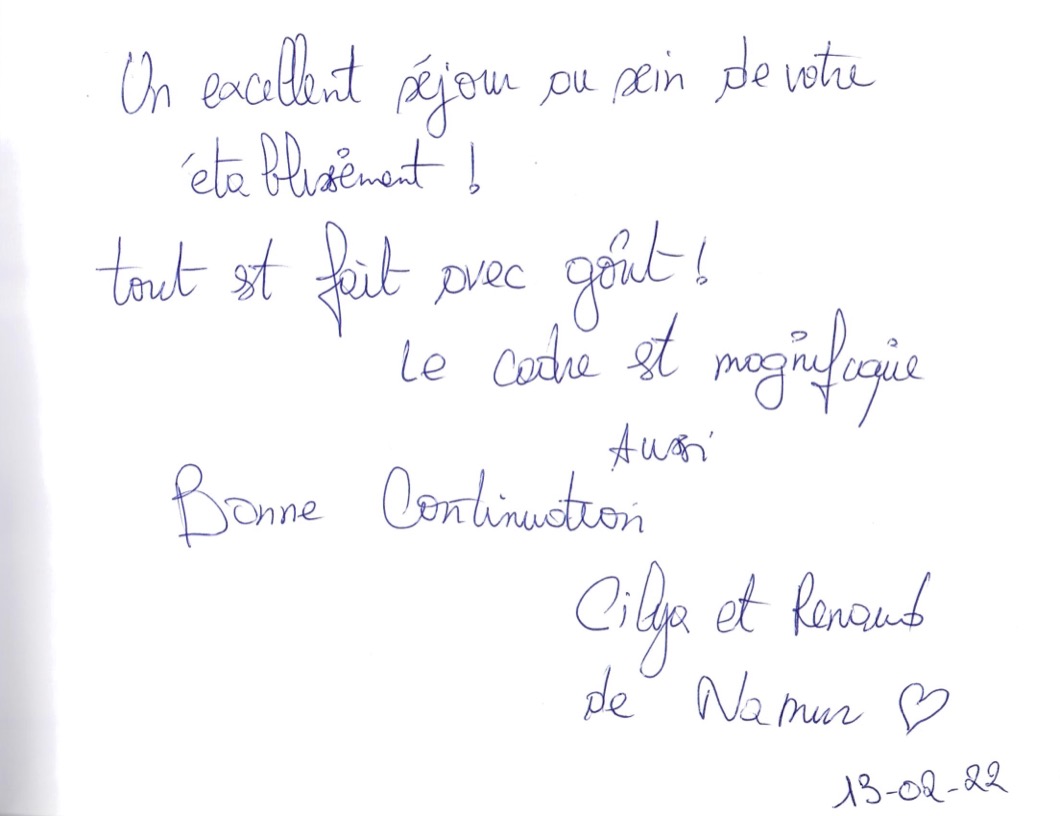 Un excellent séjour au sein de votre
établissement !
tout est fait avec goût !
Le cadre est magnifique
Aussi
Bonne Continuation
Cilya et Renaud
de Namur ♡
13-02-22